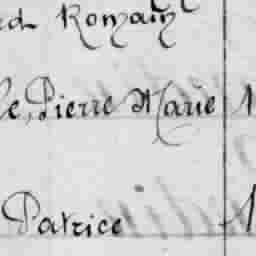 Romain
Pierre Marie
Patrice